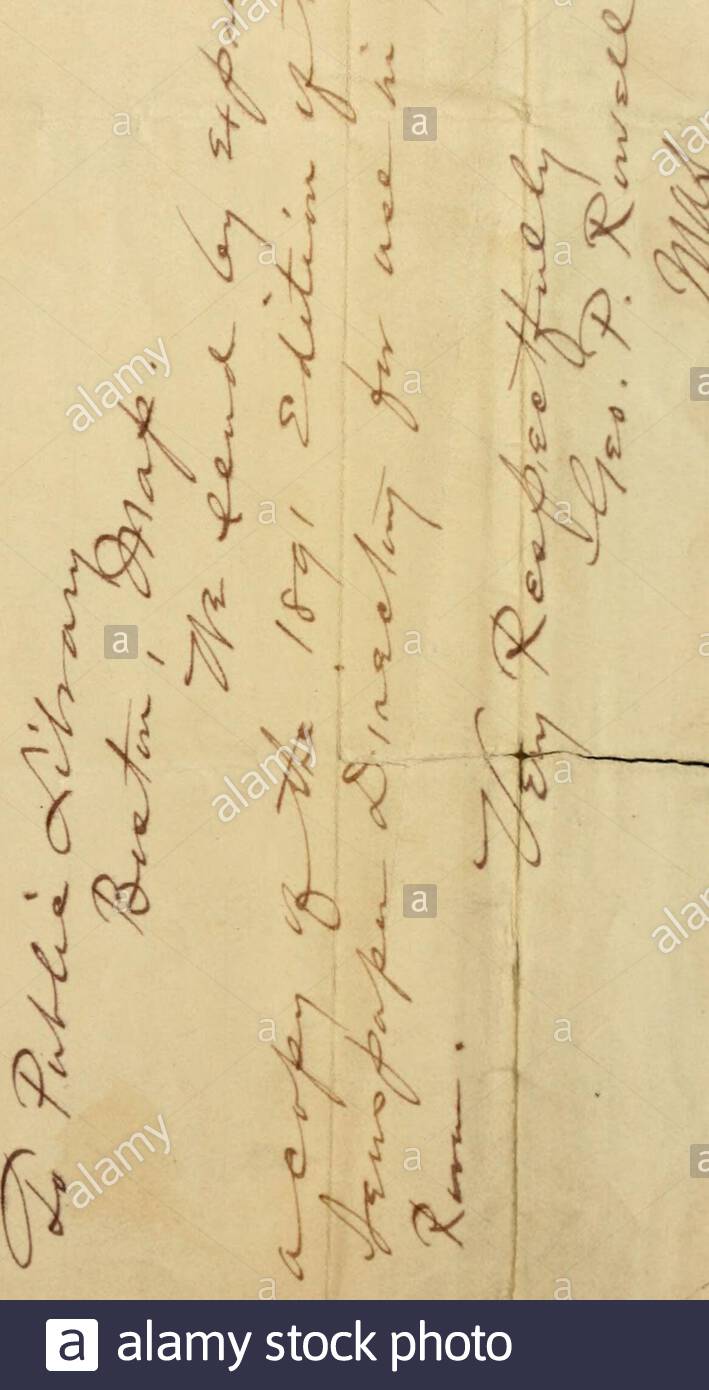 To Public Library
Boston, Mass.
We send by exp
a copy of the 1891 Edition of
Newspaper Directory for use in
Room.
Very Respectfully
Geo. P. Rowell
alamy
a
alamy stock photo